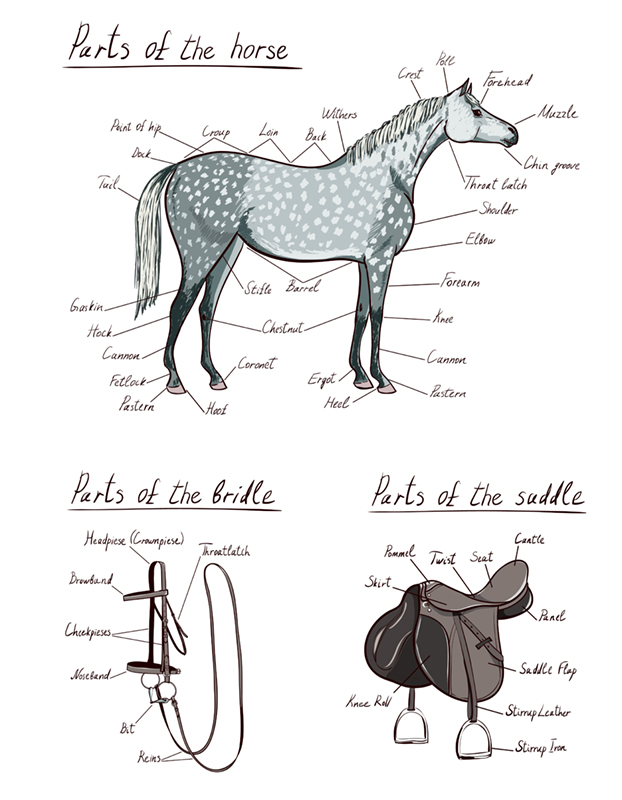 Parts of the horse
Poll
Crest
Forehead
Withers
Muzzle
Point of hip
Croup
Loin
Back
Dock
Chin groove
Tail
Throat latch
Shoulder
Elbow
Stifle
Barrel
Forearm
Gaskin
Knee
Hock
Chestnut
Cannon
Cannon
Coronet
Fetlock
Ergot
Pastern
Pastern
Hoof
Heel
Parts of the bridle
Headpiese (Crownpiese)
Throatlatch
Browband
Cheekpieses
Noseband
Bit
Reins
Parts of the saddle
Cantle
Pommel
Twist
Seat
Skirt
Panel
Saddle Flap
Knee Roll
Stirrup Leather
Stirrup Iron